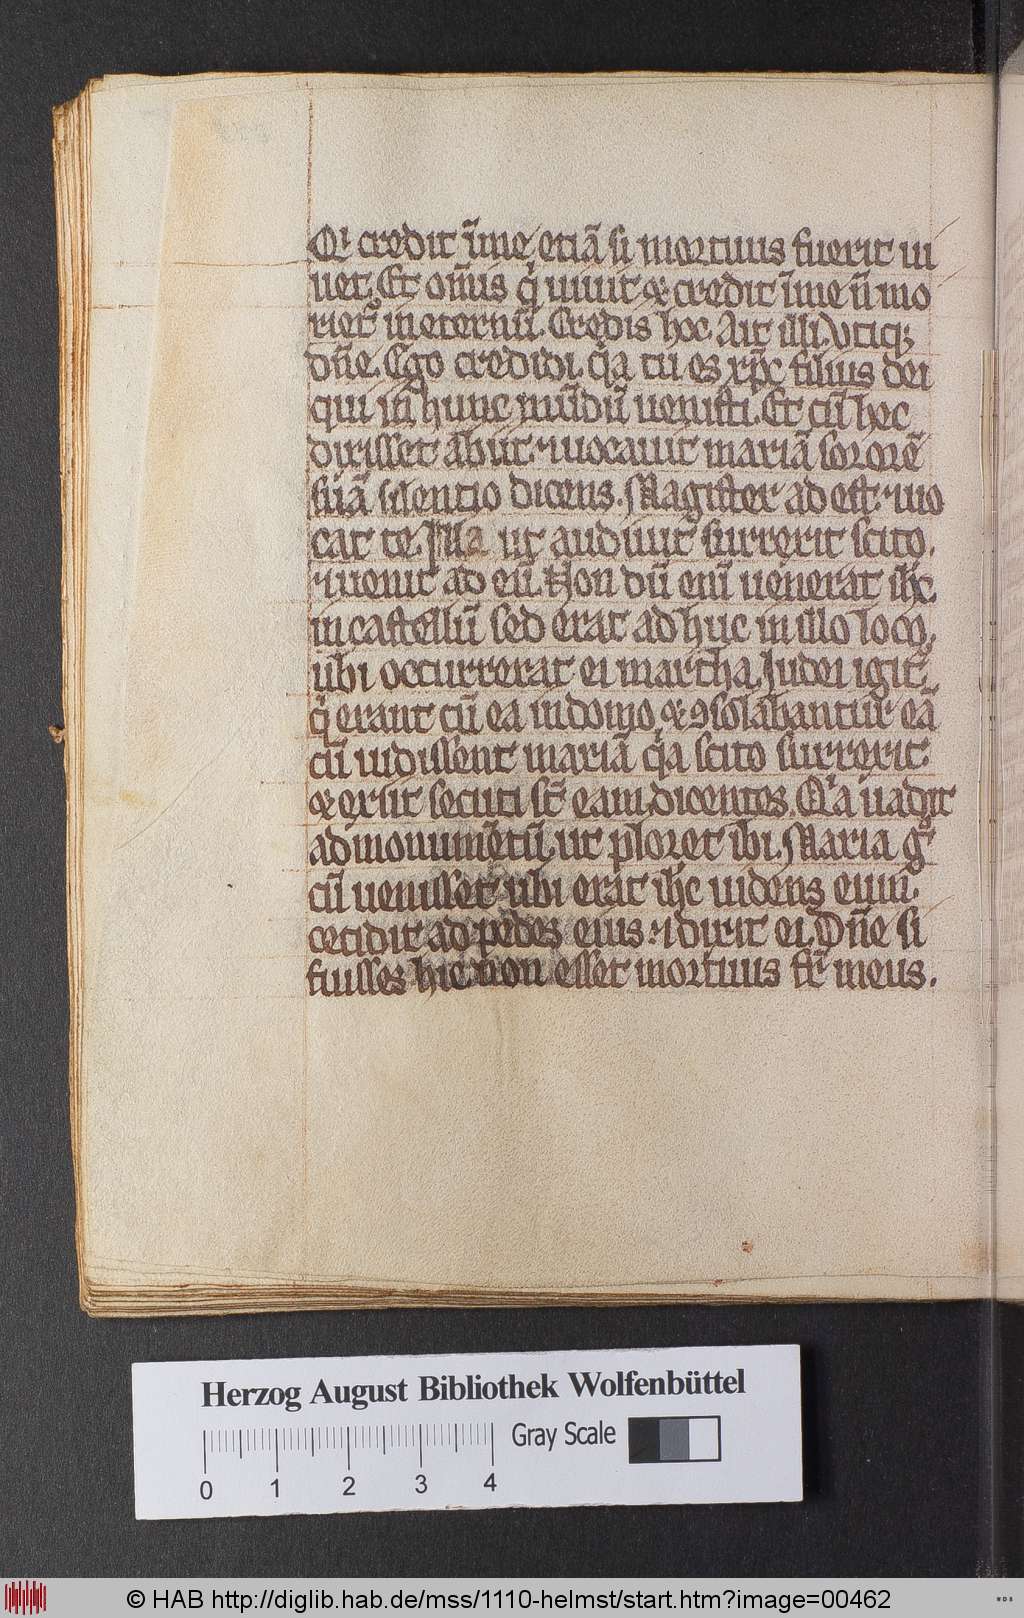 Qi credit ī me etiā si mortuus fuerit ui
uet. Et om̄is q̇ uiuit ⁊ credit ī me n̄ mo
riet᷑ in eternū. Credis hoc. Ait illi. Utiqꝫ
dn̄e. Ego credidi. qͥa tu es xp̄c filius dei
qui in hunc mūdū uenisti. Et cū hec
dixisset abiit. ⁊ uocauit mariā sororē
suā silentio dicens. Magister adest. ⁊ uo
cat te. Illa ut audiuit surrexit scito.
⁊ uenit ad eū. Non dū eni᷑ uenerat ih̄c
in castellū sed erat adhuc in illo loco.
ubi occurrerat ei martha. Iudei igit᷑
q̇ erant cū ea in domo ⁊ ꝯsolabantur eā
cū uidissent mariā qͥa scito surrexit
⁊ exiit secuti st̄ eam dicentes. Qͥa uadit
ad monumētū ut ploret ibi. Maria gͦ
cū uenisset ubi erat ih̄c uidens eum.
cecidit ad pedes eius. ⁊ dixit ei. Dn̄e si
fuisses hic non esset mortuus fr̄ meus.
Herzog August Bibliothek Wolfenbüttel
Gray Scale
0 1 2 3 4
© HAB http://diglib.hab.de/mss/1110-helmst/start.htm?image=00462